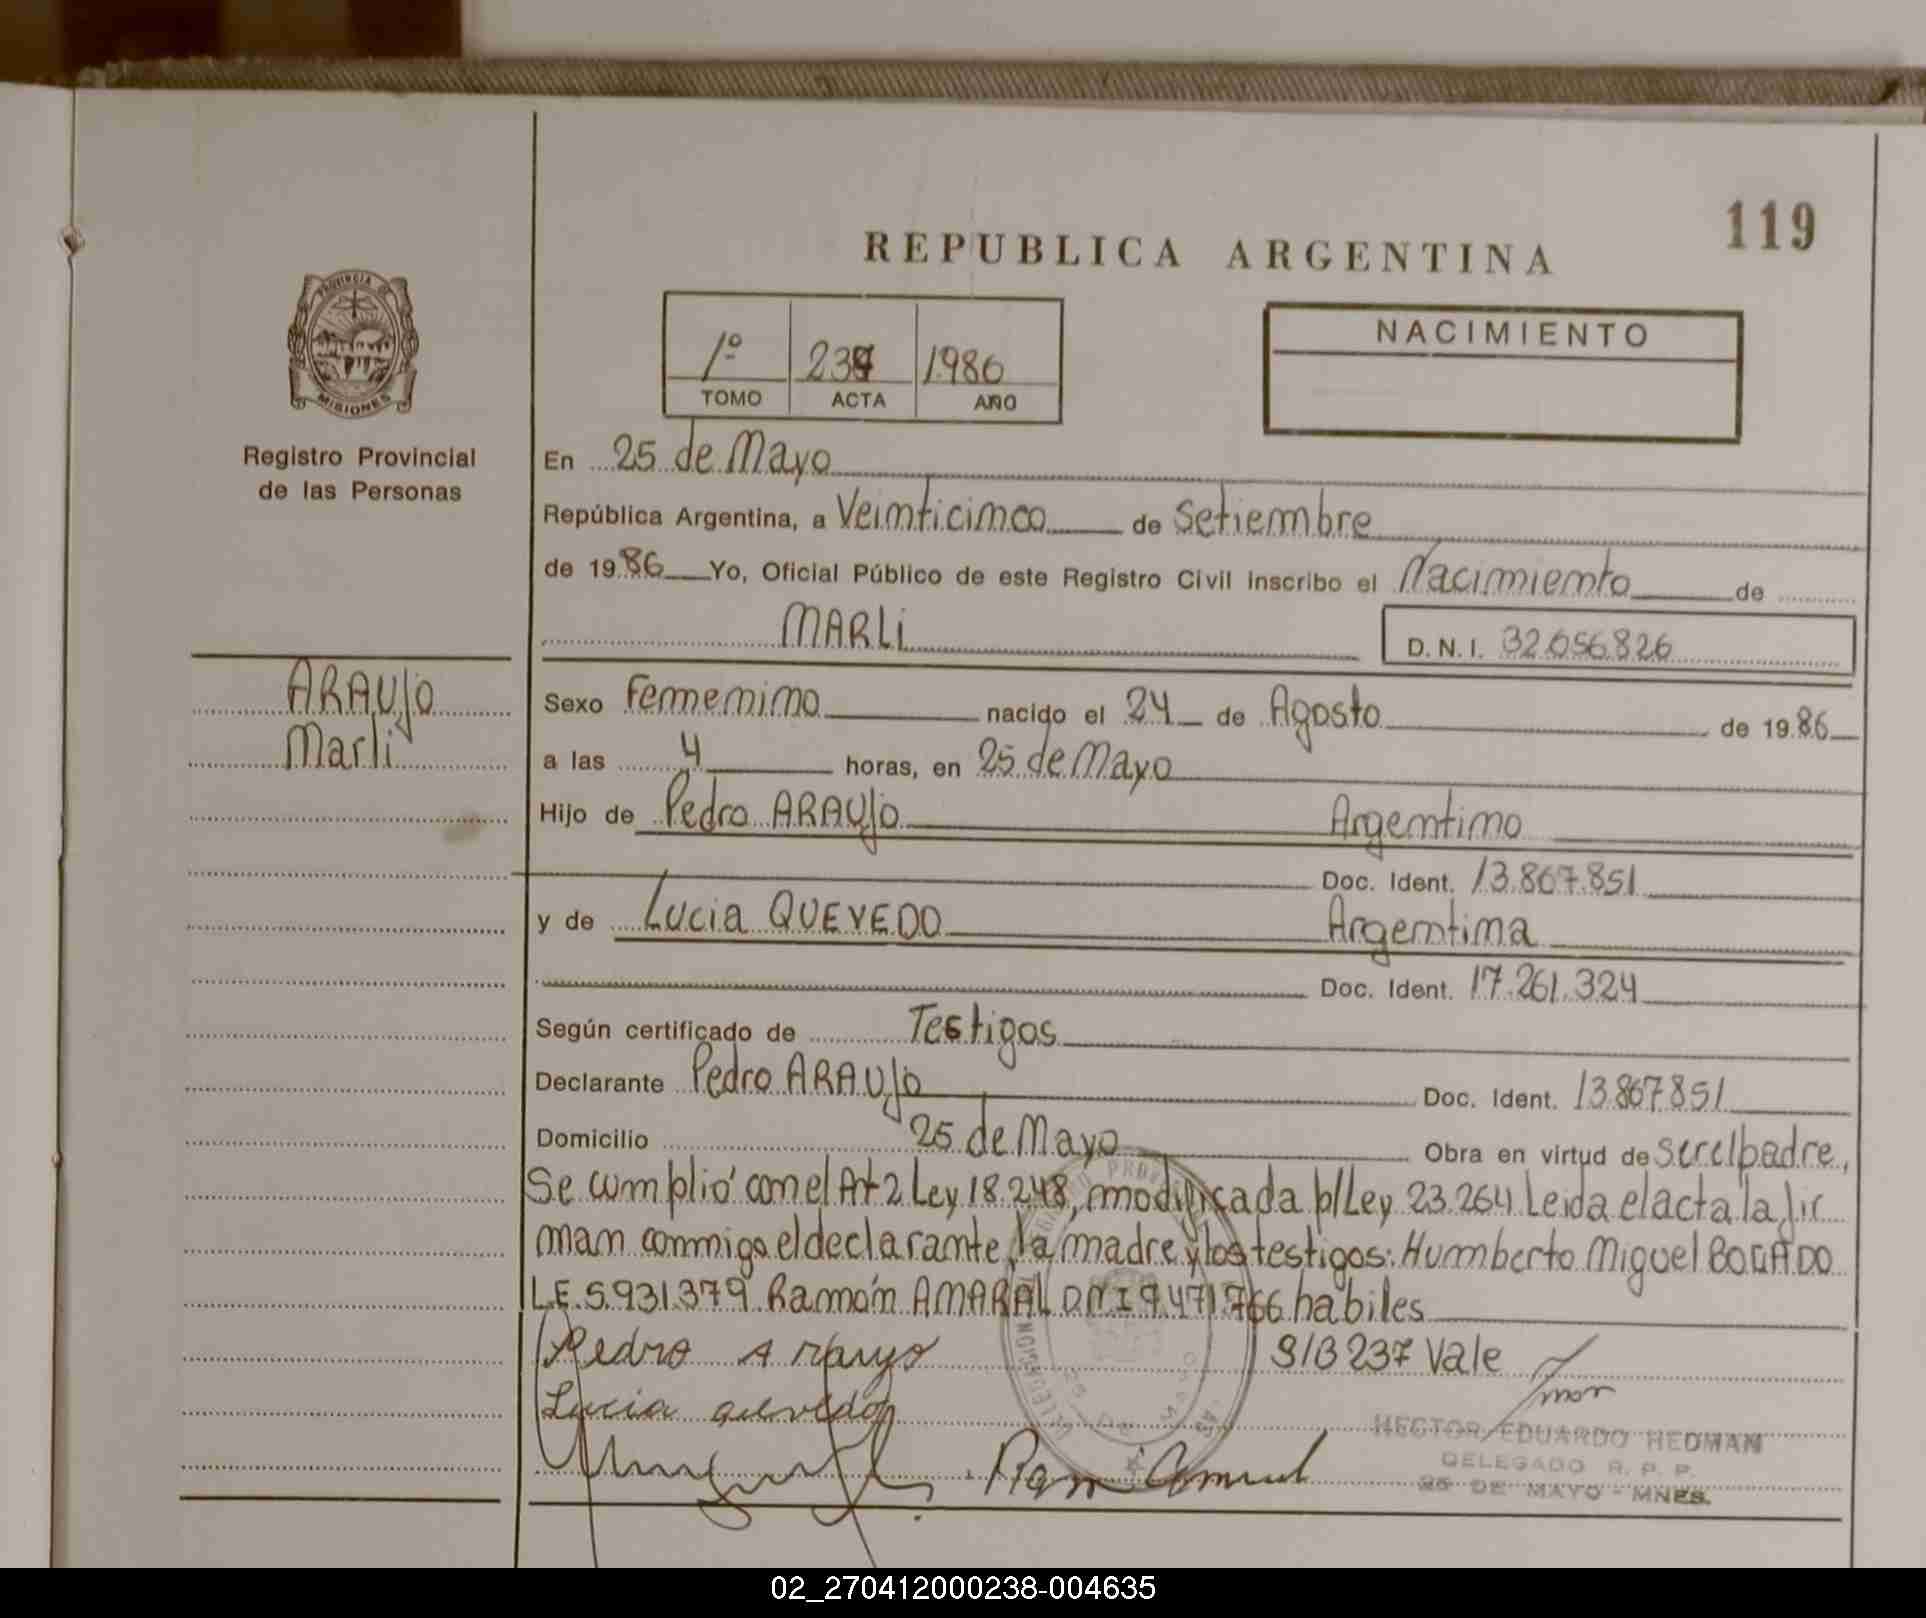 119
REPUBLICA ARGENTINA
PROVINCIA DE
MISIONES
Registro Provincial
de las Personas
1º 237 1986
TOMO ACTA AÑO
NACIMIENTO
En 25 de Mayo
República Argentina, a Veinticinco de Setiembre
de 1986 Yo, Oficial Público de este Registro Civil inscribo el Nacimiento de
MARLI D.N.I. 32.056.826
ARAUJO
Marli
Sexo Femenino nacido el 24 de Agosto de 1986
a las 4 horas, en 25 de Mayo
Hijo de Pedro ARAUJO Argentino
Doc. Ident. 13.867.851
y de Lucia QUEVEDO Argentina
Doc. Ident. 17.261.324
Según certificado de Testigos
Declarante Pedro ARAUJO Doc. Ident. 13.867851
Domicilio 25 de Mayo Obra en virtud de ser el padre,
Se cumplió con el At 2 Ley 18.248, modificada p/Ley 23.264 Leida el acta la fir
man conmigo el declarante, la madre y los testigos: Humberto Miguel BOGADO
L.E. 5.931.379 Ramón AMARAL D.N.I 9.471.766 habiles
Pedro Araujo S/B 237 Vale
Lucia quevedo
HECTOR EDUARDO HEDMAN
DELEGADO R. P. P.
25 DE MAYO - MNES.
02_270412000238-004635